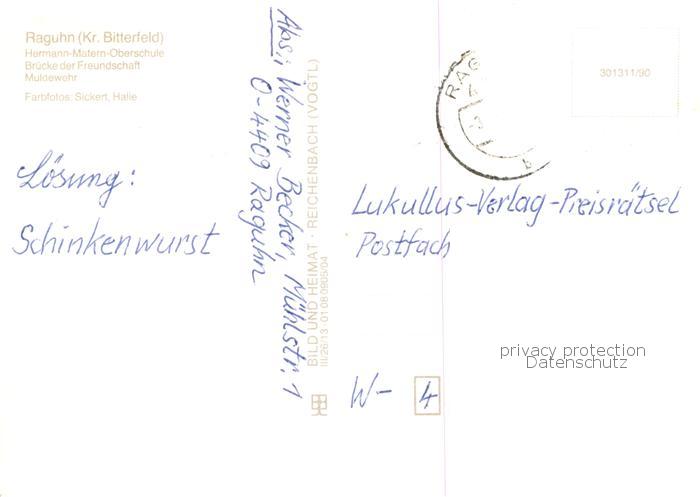 Raguhn (Kr. Bitterfeld)
Hermann-Matern-Oberschule
Brücke der Freundschaft
Muldewehr
Farbfotos: Sickert, Halle
Lösung:
Schinkenwurst
Abs.: Werner Becker, Mühlstr. 1
O-4409 Raguhn
BILD UND HEIMAT · REICHENBACH (VOGTL)
III/26/13 · 01 08 0905/04
RAG
301311/90
Lukullus-Verlag-Preisrätsel
Postfach
privacy protection
Datenschutz
W- 4